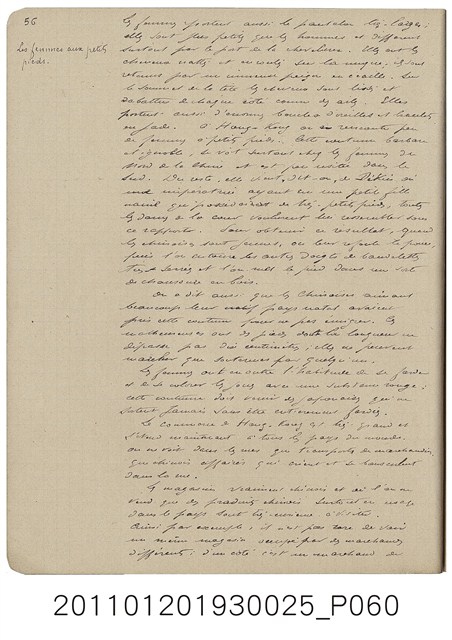 56
Les femmes aux petits
pieds.
Les femmes portent aussi le pantalon très large,
elles sont plus petites que les hommes et diffèrent
surtout par le port de la chevelure. Elles ont les
cheveux nattés et enroulés sur la nuque, et sont
retenus par un immense peigne en écaille. Sur
le sommet de la tête les cheveux sont lissés et
rabattus de chaque côté comme des ailes. Elles
portent aussi d'énormes boucles d'oreilles et bracelets
en jade. À Hong-Kong on en rencontre peu
de femmes à petits pieds. Cette coutume barbare
et ignoble, se voit surtout chez les femmes du
Nord de la Chine et est peu usitée dans le
Sud. Du reste, elle vient, dit-on, de Pékin où
une impératrice ayant eu une petite fille
qui possédait de très petits pieds, toutes
les dames de la cour voulurent lui ressembler sous
ce rapport. Pour obtenir ce résultat, quand
les chinoises sont jeunes, on leur replie le pouce,
puis l'on entoure les autres doigts de bandelettes
très serrées et l'on met le pied dans une sorte
de chaussure en bois.
On a dit aussi que les Chinoises aimant
beaucoup leur pays natal avaient
pris cette coutume pour ne pas émigrer. Les
malheureuses ont des pieds dont la longueur ne
dépasse pas dix centimètres, elles ne peuvent
marcher que soutenues par quelqu'un.
Les femmes ont en outre l'habitude de se farder
et de se colorer les joues avec une substance rouge;
cette coutume doit venir des japonaises qui ne
sortent jamais sans être entièrement fardées.
Le commerce de Hong-Kong est très grand et
s'étend maintenant à tous les pays du monde.
On ne voit dans les rues que transports de marchandises,
que chinois affairés qui crient et se bousculent
dans la rue.
Les magasins vraiment chinois et où l'on ne
vend que des produits chinois surtout en usage
dans le pays sont très curieux à visiter.
Ainsi par exemple, il n'est pas rare de voir
un même magasin occupé par des marchands
différents: d'un côté c'est un marchand de
201101201930025_P060